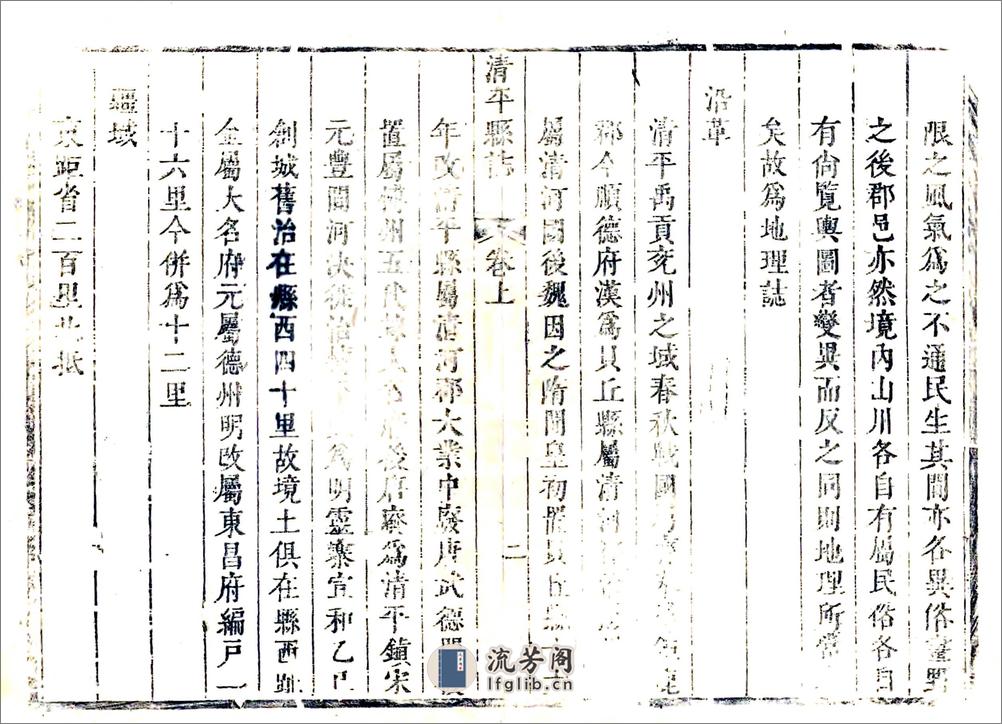 限之風氣爲之不通民生其間亦各異俗畫野
之後郡邑亦然境內山川各自有屬民俗各自
有尚覽輿圖者變異而反之同則地理所當
矣故爲地理誌
沿革
清平禹貢兗州之域春秋戰國
郡今順德府漢爲貝丘縣屬清河
屬清河國後魏因之隋開皇初罷貝丘
清平縣誌 卷上 二
年改清平縣屬清河郡大業中廢唐武德
置屬博州五代 後唐 爲清平鎮宋
元豐間河決徙治 爲明靈寨宣和乙巳
創城舊治在縣西四十里故境土俱在縣西距
金屬大名府元屬德州明改屬東昌府編戶一
十六里今併爲十二里
疆域
東距省二百里 抵
流芳阁
lfglib.cn